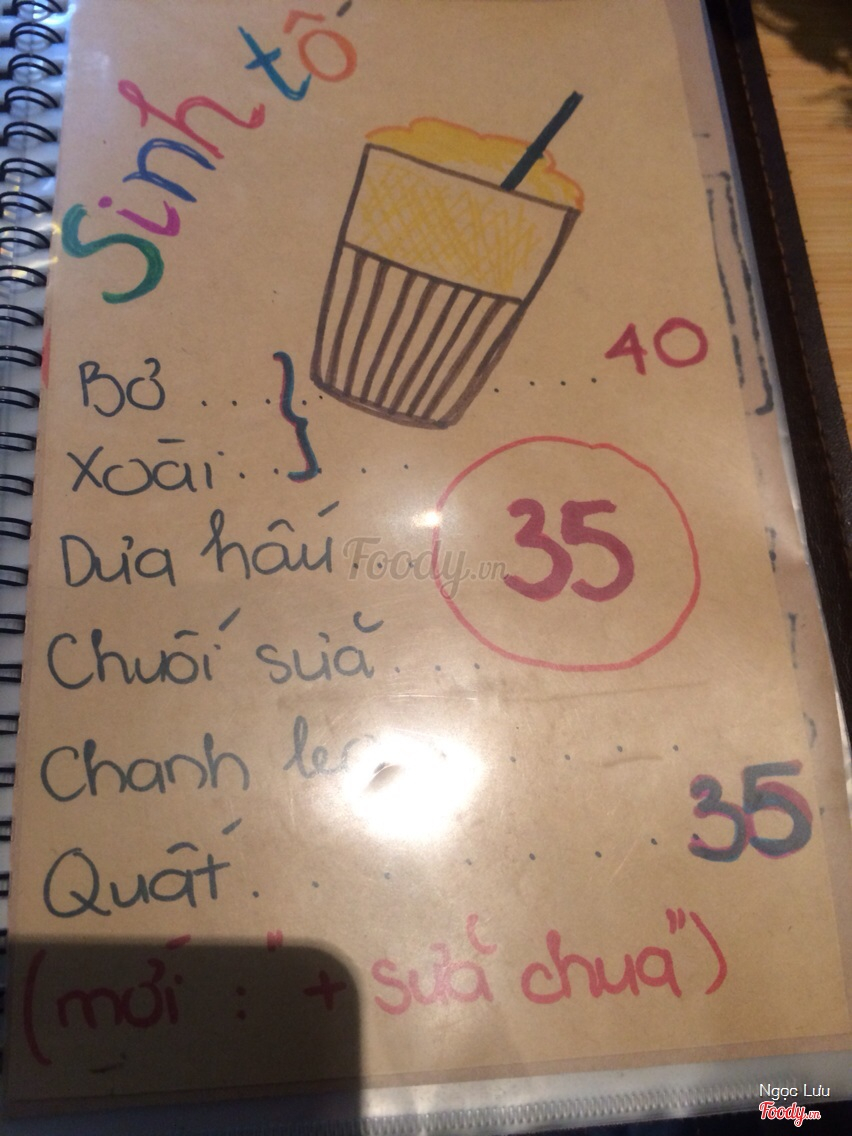 Sinh tố
Bơ .... } ..... 40
Xoài .. } ...
Dưa hấu ... 35
Chuối sữa ...
Chanh leo ....
Quất ....... 35
(mới : "+ sữa chua")
Foody.vn
Ngọc Lưu
Foody.vn